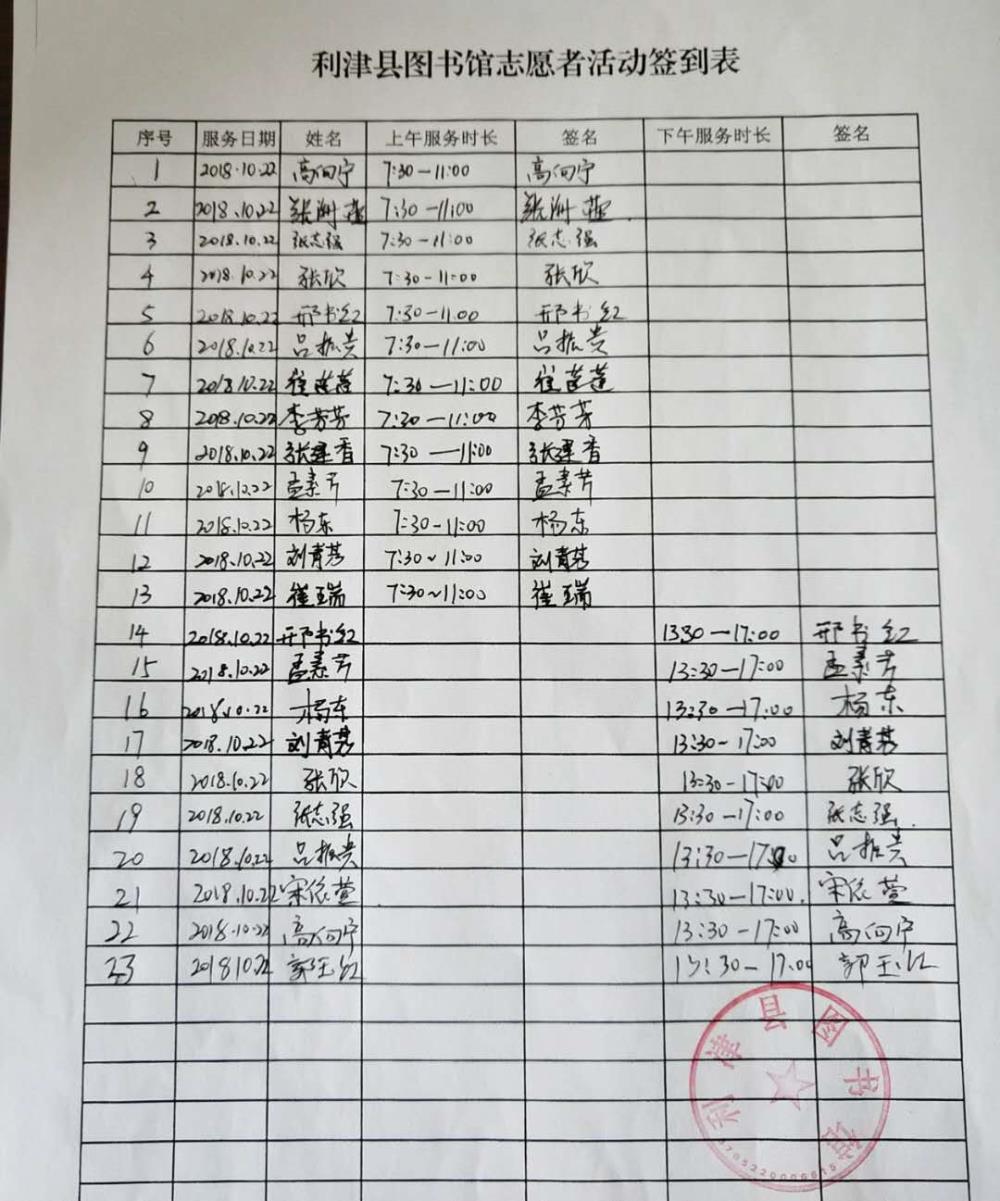 利津县图书馆志愿者活动签到表
序号 服务日期 姓名 上午服务时长 签名 下午服务时长 签名
1 2018.10.22 高向宁 7:30-11:00 高向宁
2 2018.10.22 张洲 7:30-11:00 张洲
3 2018.10.22 张志强 7:30-11:00 张志强
4 2018.10.22 张欣 7:30-11:00 张欣
5 2018.10.22 邢书红 7:30-11.00 邢书红
6 2018.10.22 吕振贵 7:30-11:00 吕振贵
7 2018.10.22 崔莲莲 7:30-11:00 崔莲莲
8 2018.10.22 李芳芳 7:30-11:00 李芳芳
9 2018.10.22 张建香 7:30-11:00 张建香
10 2018.10.22 孟素芹 7:30-11:00 孟素芹
11 2018.10.22 杨东 7:30-11:00 杨东
12 2018.10.22 刘青芬 7:30~11:00 刘青芬
13 2018.10.22 崔玉瑞 7:30~11:00 崔玉瑞
14 2018.10.22 邢书红 1330-17:00 邢书红
15 2018.10.22 孟素芹 13:30-17:00 孟素芹
16 2018.10.22 杨东 13:30-17:00 杨东
17 2018.10.22 刘青芬 13:30-17:00 刘青芬
18 2018.10.22 张欣 13:30-17:00 张欣
19 2018.10.22 张志强 13:30-17:00 张志强
20 2018.10.22 吕振贵 13:30-17:00 吕振贵
21 2018.10.22 宋依萱 13:30-17:00. 宋依萱
22 2018.10.22 高向宁 13:30-17:00 高向宁
23 201810.22 郭玉红 13:30-17:00 郭玉红
利津县图书馆